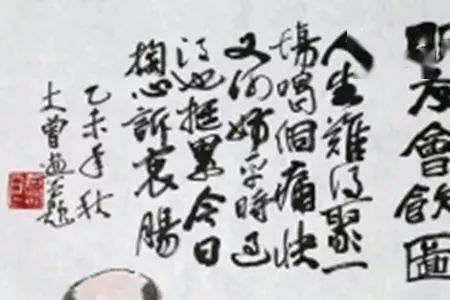 朋友會飲圖
人生難得聚一
場喝個痛快
又何妨平時過
得也挺累今日
掏心訴衷腸
乙未年秋
大曾畫並題